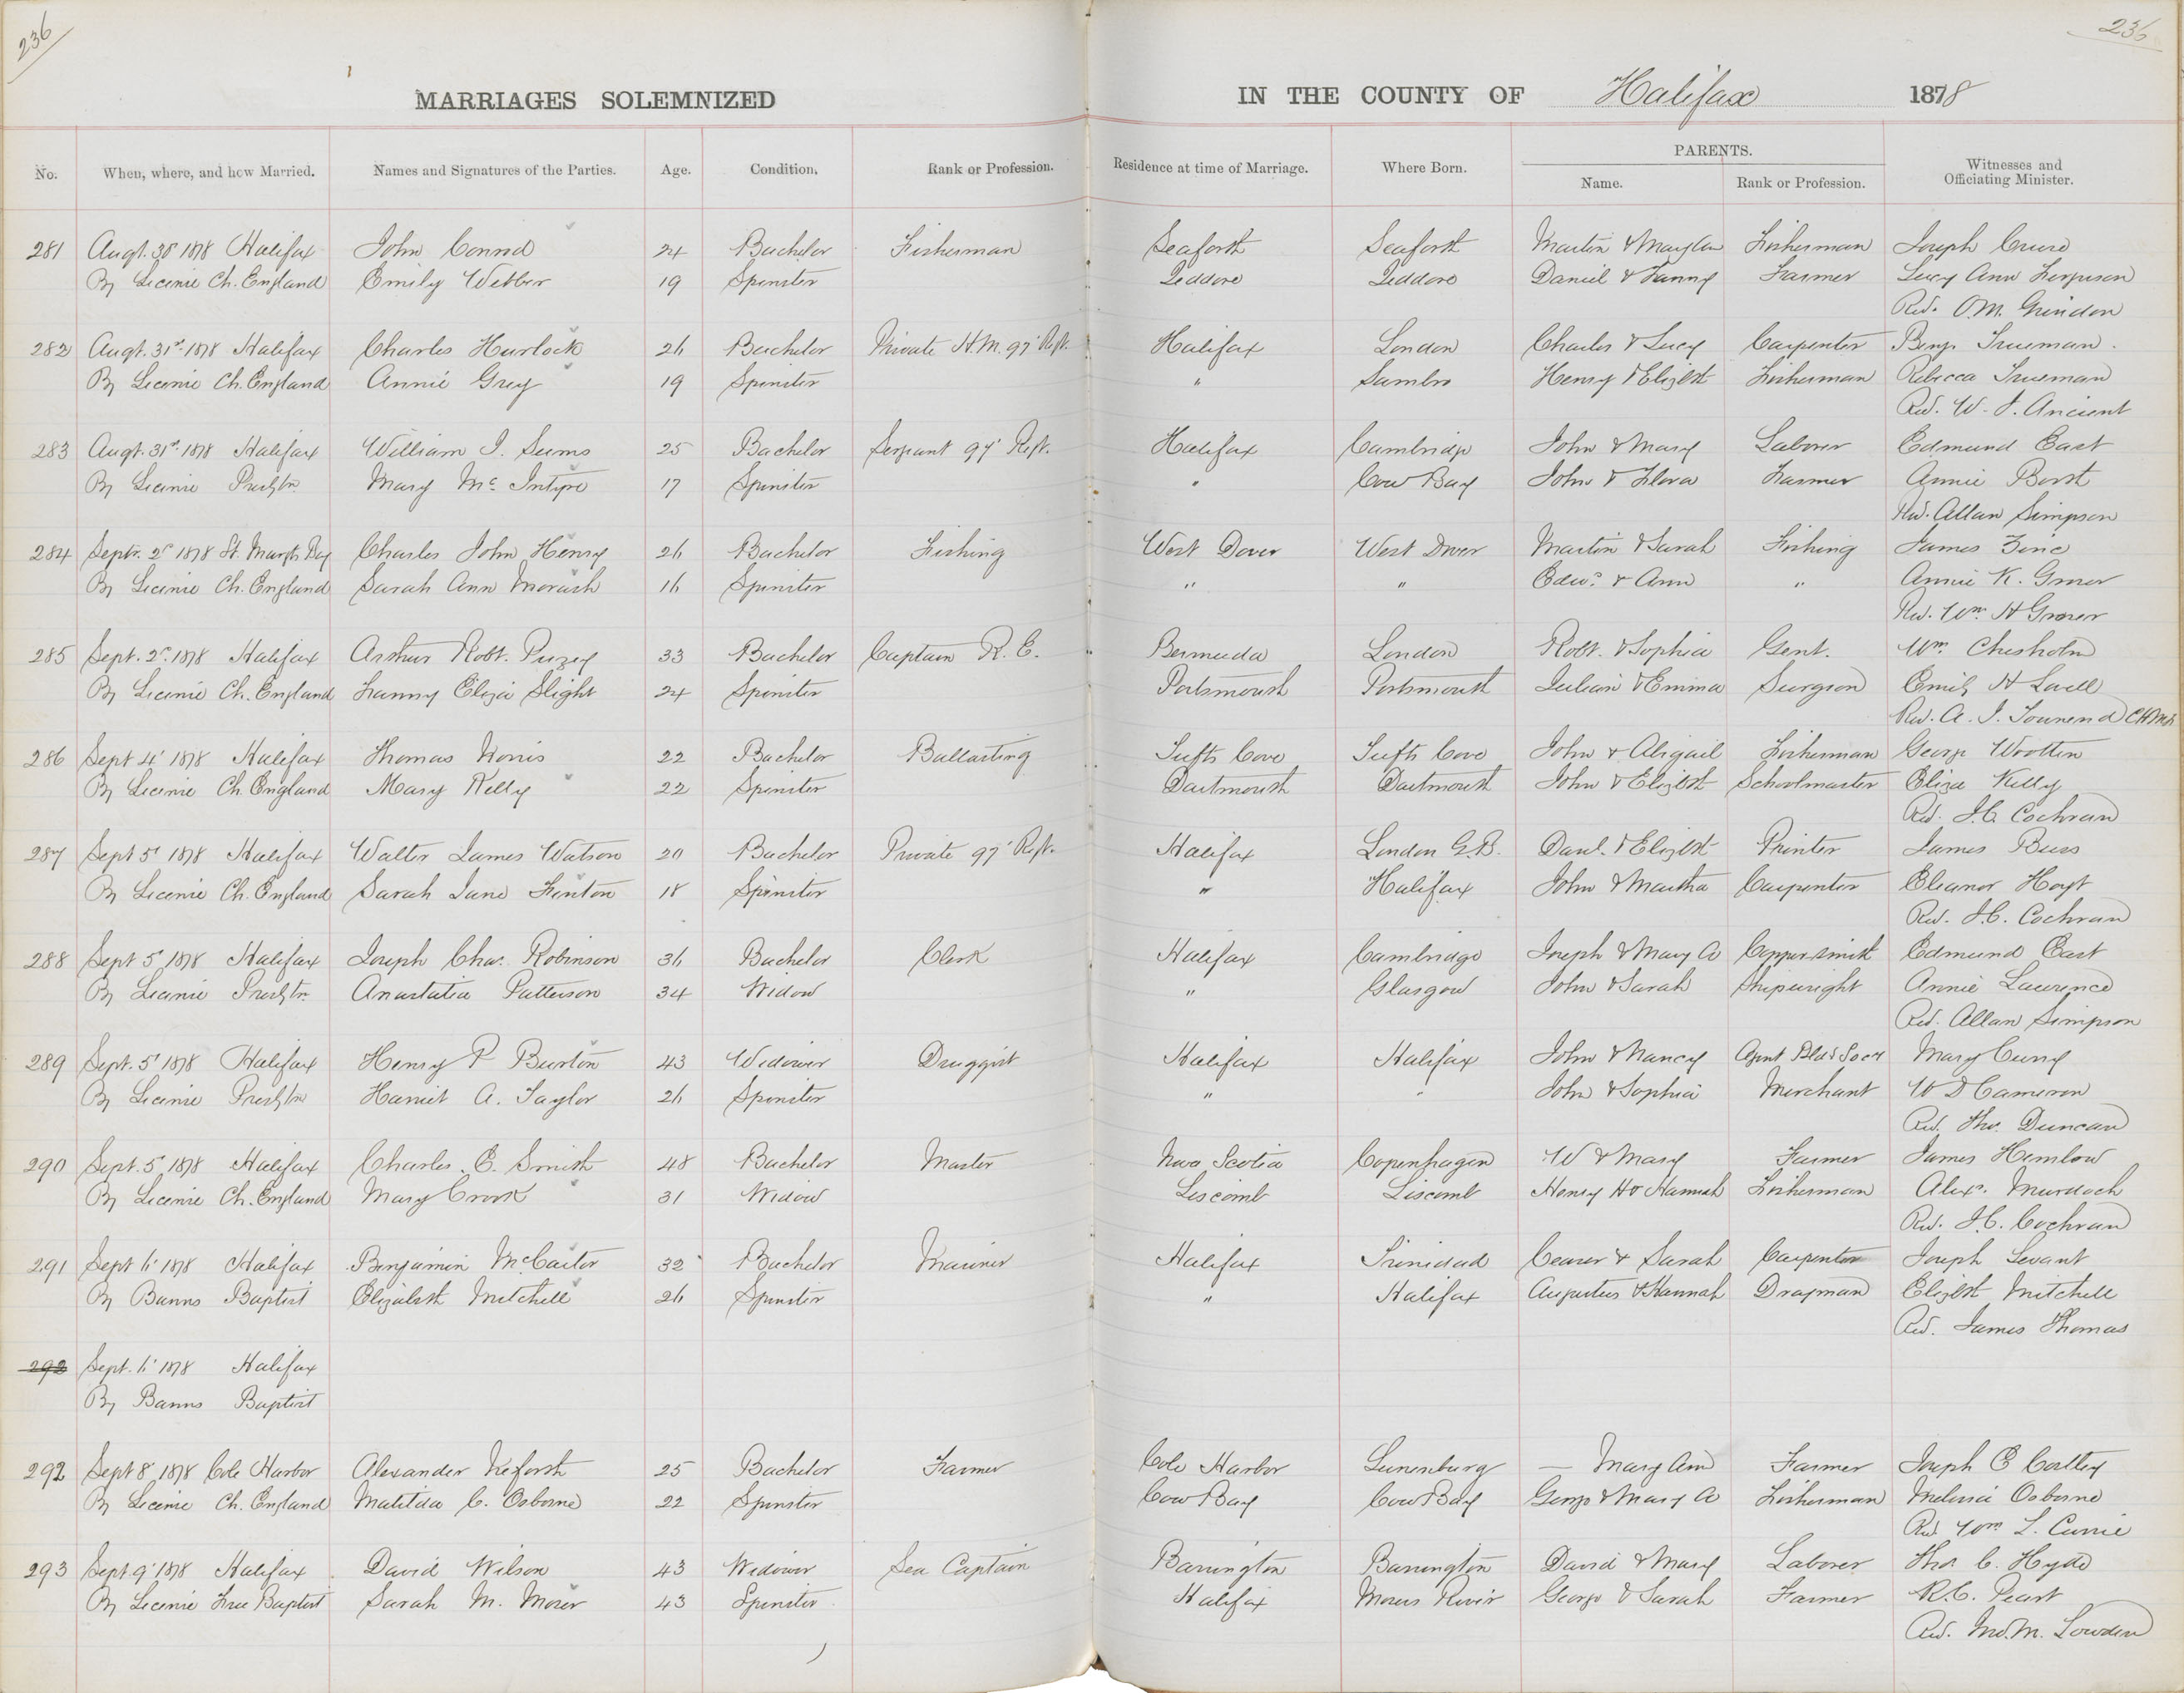 236
236
MARRIAGES SOLEMNIZED IN THE COUNTY OF Halifax 1878
No. When, where, and how Married. Names and Signatures of the Parties. Age. Condition. Rank or Profession. Residence at time of Marriage. Where Born. PARENTS. Name. Rank or Profession. Witnesses and Officiating Minister.
281 Augt. 30 1878 Halifax John Conrod 24 Bachelor Fisherman Seaforth Seaforth Martin & Mary Ann Fisherman Joseph Cruse
By License Ch. England Emily Webber 19 Spinster Jeddore Jeddore Daniel & Fanny Farmer Lucy Ann Ferguson
Rev. O.M. Grindon
282 Augt. 31st 1878 Halifax Charles Hurlock 26 Bachelor Private H.M. 97' Regt. Halifax London Charles & Lucy Carpenter Benj. Trueman
By License Ch. England Annie Grey 19 Spinster " Sambro Henry & Elizbth Fisherman Rebecca Trueman
Rev. W. J. Ancient
283 Augt. 31st 1878 Halifax William J. Sums 25 Bachelor Sergeant 97' Regt. Halifax Cambridge John & Mary Laborer Edmund East
By License Presbtn Mary McIntyre 17 Spinster " Cow Bay John & Flora Farmer Annie Borst
Rev. Allan Simpson
284 Septr. 2d 1878 St. Margts Bay Charles John Henry 26 Bachelor Fishing West Dover West Dover Martin & Sarah Fishing James Zinc
By License Ch. England Sarah Ann Morash 16 Spinster " " Edwd. & Ann " Annie K. Groser
Rev. Wm. H Groser
285 Sept. 2d 1878 Halifax Arthur Robt. Puzey 33 Bachelor Captain R. E. Bermuda London Robt. & Sophia Gent. Wm. Chisholm
By License Ch. England Fanny Eliza Slight 24 Spinster Portsmouth Portsmouth Julian & Emma Surgeon Emily H Lovell
Rev. A. J. Townend
286 Sept 4' 1878 Halifax Thomas Norris 22 Bachelor Ballasting Tufts Cove Tufts Cove John & Abigail Fisherman George Wootten
By License Ch. England Mary Kelly 22 Spinster Dartmouth Dartmouth John & Elizbth Schoolmaster Eliza Kelly
Rev. J.C. Cochran
287 Sept 5' 1878 Halifax Walter James Watson 20 Bachelor Private 97' Regt. Halifax London G.B. Danl. & Elizbth Printer James Buss
By License Ch. England Sarah Jane Fenton 18 Spinster " Halifax John & Martha Carpenter Eleanor Hoyt
Rev. J.C. Cochran
288 Sept 5' 1878 Halifax Joseph Chas. Robinson 36 Bachelor Clerk Halifax Cambridge Joseph & Mary A Coppersmith Edmund East
By License Presbtn Anastatia Patterson 34 Widow " Glasgow John & Sarah Shipwright Annie Lawrence
Rev. Allan Simpson
289 Sept. 5' 1878 Halifax Henry P Burton 43 Widower Druggist Halifax Halifax John & Nancy Agent Bld'g Socy Mary Curry
By License Presbtn Harriet A. Taylor 26 Spinster " " John & Sophia Merchant W D Cameron
Rev. Thos. Duncan
290 Sept. 5' 1878 Halifax Charles E. Smith 48 Bachelor Master Nova Scotia Copenhagen W & Mary Farmer James Hemlow
By License Ch. England Mary Crook 31 Widow Liscomb Liscomb Henry H & Hannah Fisherman Alexr. Murdoch
Rev. J.C. Cochran
291 Sept 6' 1878 Halifax Benjamin McCarter 32 Bachelor Mariner Halifax Trinidad Ceaser & Sarah Carpenter Joseph Levant
By Banns Baptist Elizabeth Mitchell 26 Spinster " Halifax Augustus & Hannah Drayman Elizbth Mitchell
Rev. James Thomas
292 Sept. 6' 1878 Halifax
By Banns Baptist
292 Sept 8' 1878 Cole Harbor Alexander Neforth 25 Bachelor Farmer Cole Harbor Lunenburg — Mary Ann Farmer Joseph E
By License Ch. England Matilda C. Osborne 22 Spinster Cow Bay Cow Bay George & Mary A Fisherman Melissia Osborne
Rev Wm. L. Currie
293 Sept. 9' 1878 Halifax David Wilson 43 Widower Sea Captain Barrington Barrington David & Mary Laborer Thos. C. Hyde
By License Free Baptist Sarah M. Moser 43 Spinster Halifax Mosers River George & Sarah Farmer R.C. Peart
Rev. Jno. M. Lowden